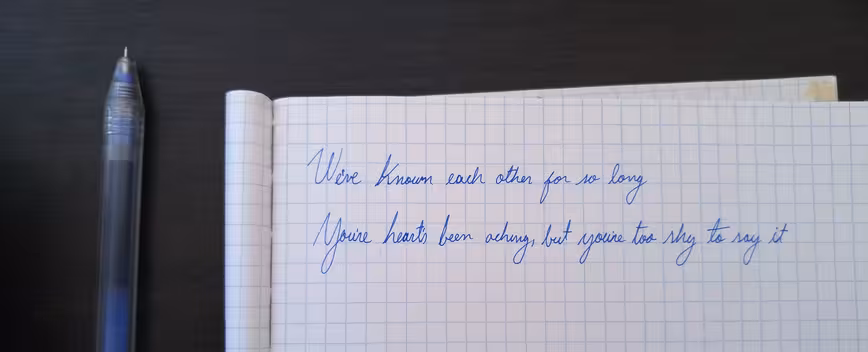 We've known each other for so long
You're heart's been aching, but you're too shy to say it